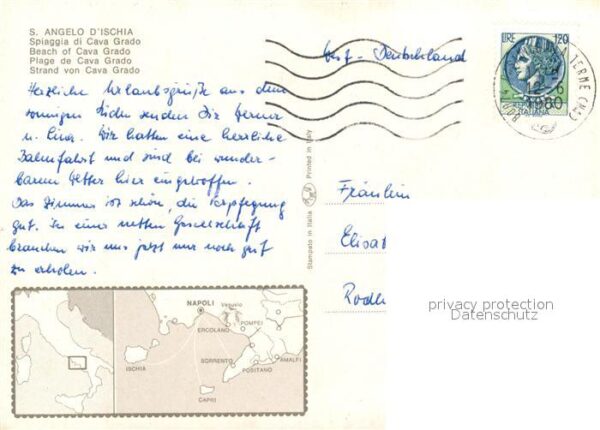 S. ANGELO D'ISCHIA
Spiaggia di Cava Grado
Beach of Cava Grado
Plage de Cava Grado
Strand von Cava Grado
West-Deutschland
LIRE 120
TERME (NA)
12-6
1980
ITALIANA
Herzliche Urlaubsgrüße aus dem
sonnigen Süden senden Dir Werner
u. Lina. Wir hatten eine herrliche
Bahnfahrt und sind bei wunder-
barem Wetter hier eingetroffen.
Das Zimmer ist schön, die Verpflegung
gut. In einer netten Gesellschaft
brauchen wir uns jetzt nur noch gut
zu erholen.
Stampato in Italia Printed in Italy
Fräulein
Elisa
Rodh
privacy protection
Datenschutz
NAPOLI
Vesuvio
ERCOLANO
POMPEI
ISCHIA
SORRENTO
AMALFI
POSITANO
CAPRI